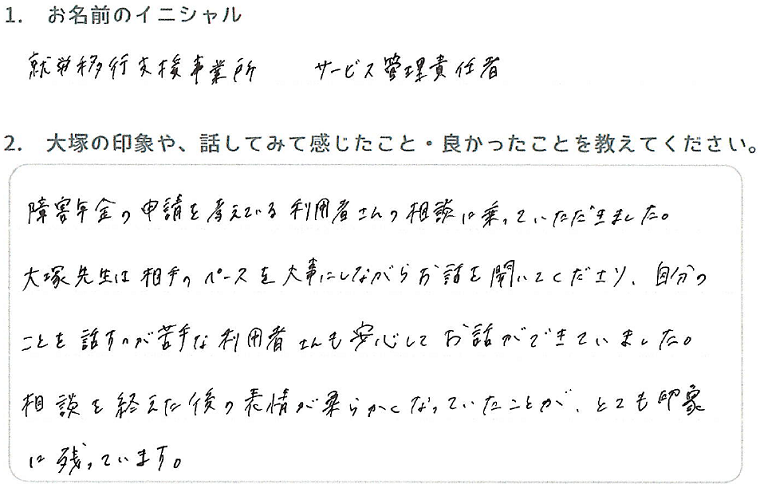 1. お名前のイニシャル
就労移行支援事業所　　サービス管理責任者
2. 大塚の印象や、話してみて感じたこと・良かったことを教えてください。
障害年金の申請を考えている利用者さんの相談に乗っていただきました。
大塚先生は相手のペースを大事にしながらお話を聞いてくださり、自分の
ことを話すのが苦手な利用者さんも安心してお話ができていました。
相談を終えた後の表情が柔らかくなっていたことが、とても印象
に残っています。